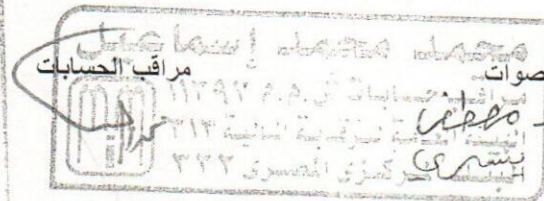 محمد محمد إسماعيل
صوات مراقب الحسابات
مراقب حسابات س.م.م ١١٢٩٢
مصطفى
الهيئة العامة للرقابة المالية ٣١٣
يسرى
البنك المركزى المصرى ٣٢٢